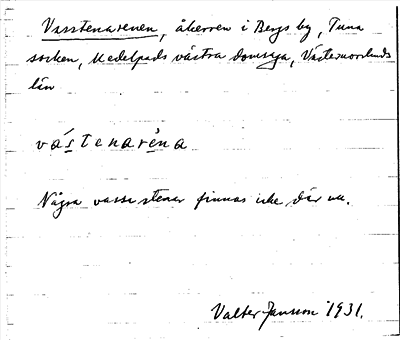 Vasstenarenen, åkerren i Bergs by, Tuna
socken, Medelpads västra domsaga, Västernorrlands
län
vástenarèna
Några vassa stenar finnas icke där nu.
Valter Jansson 1931.